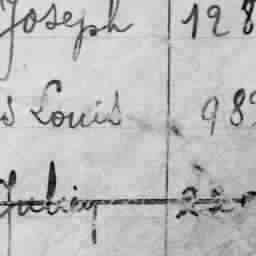 Joseph 128
s Louis 989
Julien 225